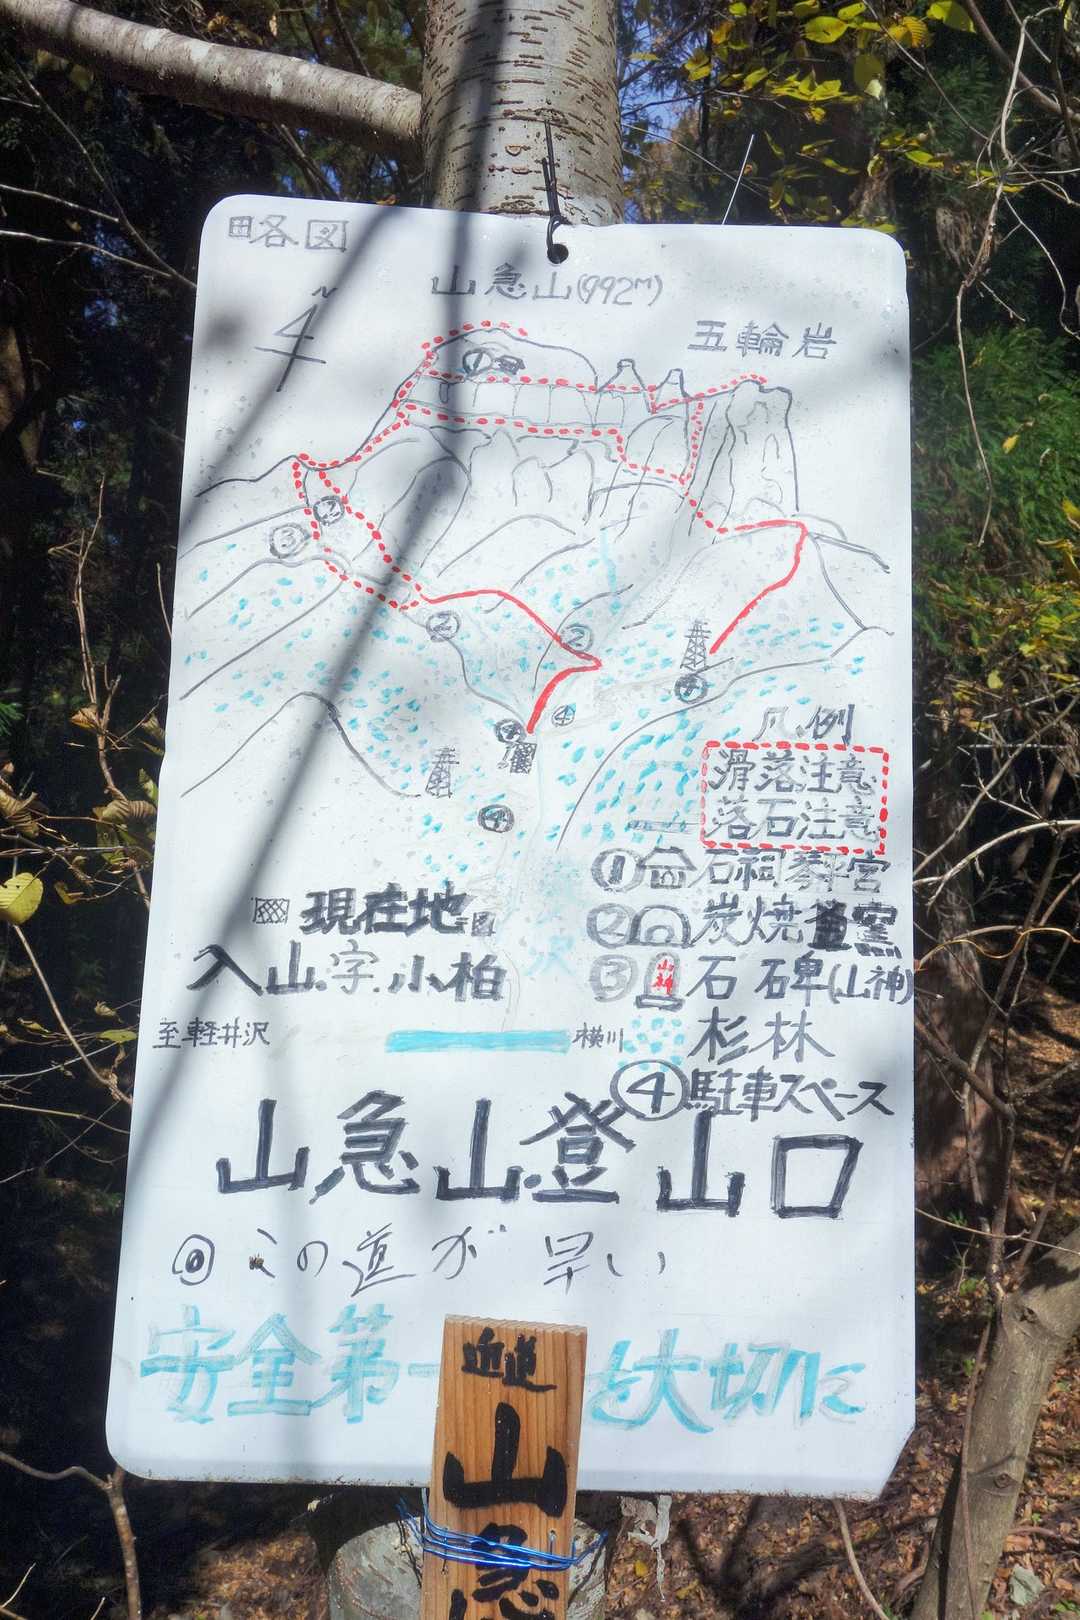 略各図
山急山(992M)
N
五輪岩
①
②
③
②
②
④
④
④
④
凡例
滑落注意
落石注意
①石祠琴平宮
②炭焼窯
③山神石碑(山神)
杉林
④駐車スペース
現在地
入山字小柏
沢
至軽井沢
横川
山急山登山口
◎この道が早い
安全第一
を大切に
近道
山急